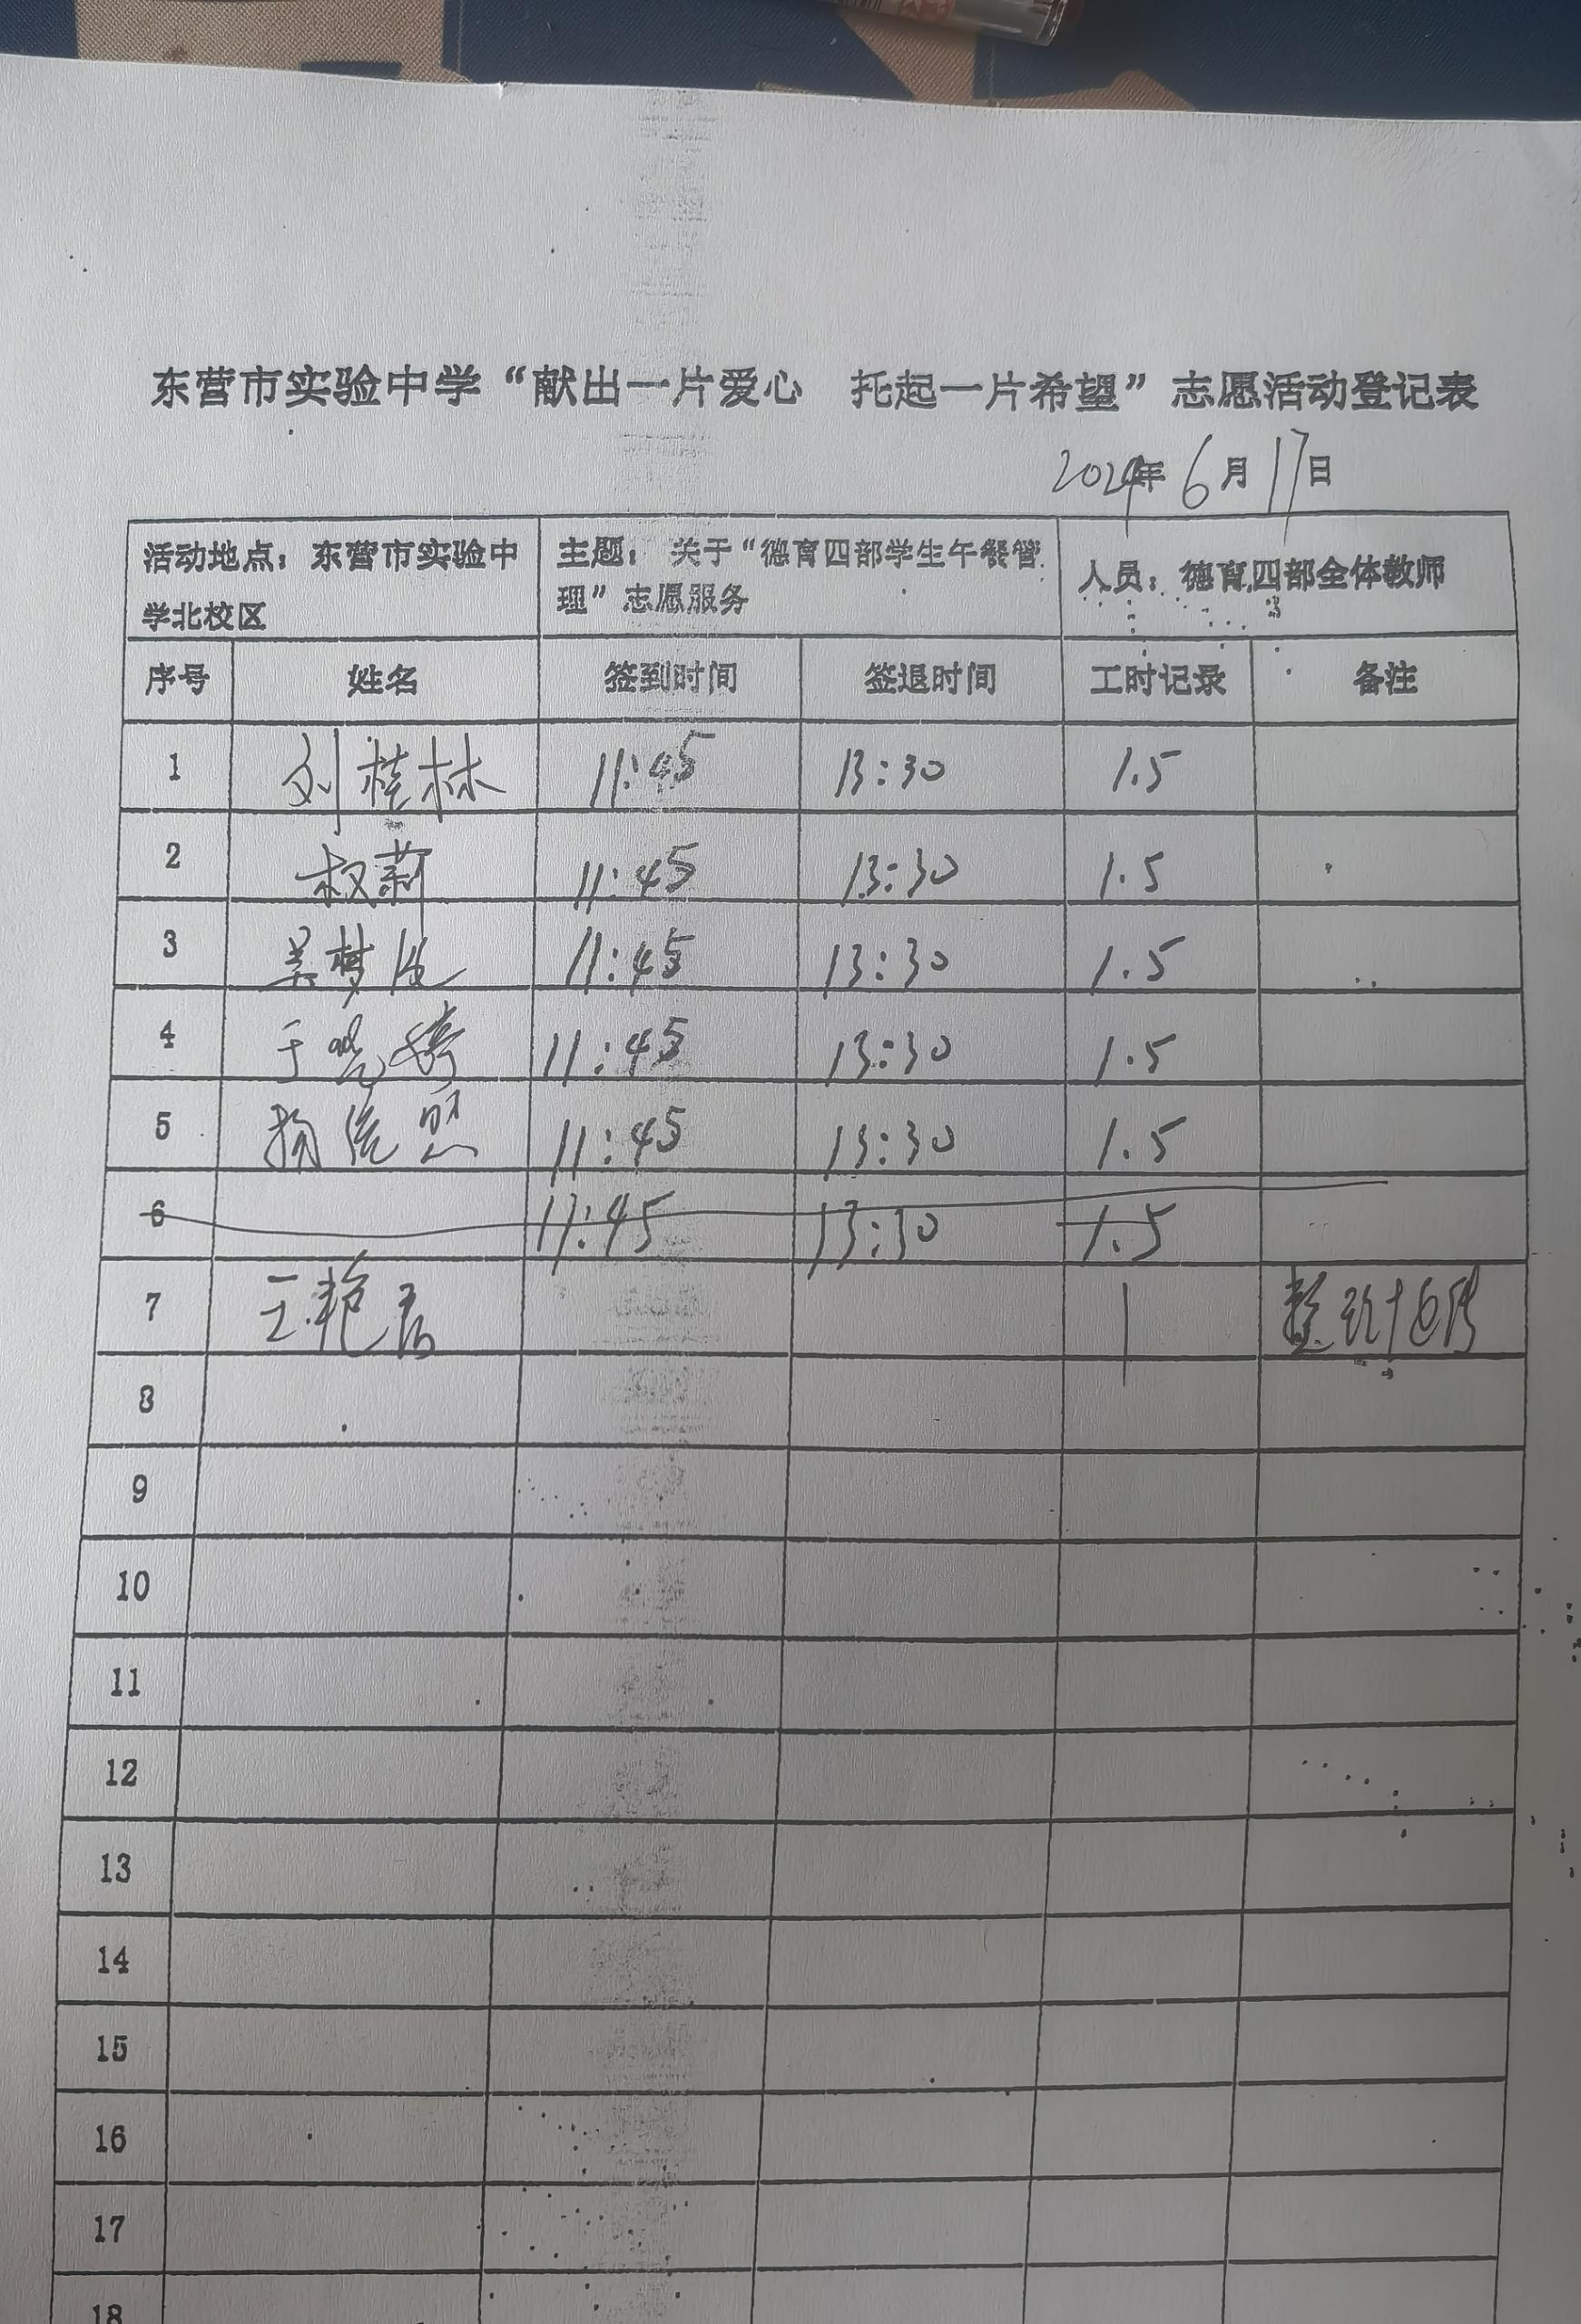 东营市实验中学“献出一片爱心 托起一片希望”志愿活动登记表
2024年6月17日
活动地点：东营市实验中学北校区 主题：关于“德育四部学生午餐管理”志愿服务 人员：德育四部全体教师
序号 姓名 签到时间 签退时间 工时记录 备注
1 刘桂林 11:45 13:30 1.5
2 权莉 11:45 13:30 1.5
3 11:45 13:30 1.5
4 于晓婷 11:45 13:30 1.5
5 11:45 13:30 1.5
6 11:45 13:30 1.5
7 王艳君 1
8
9
10
11
12
13
14
15
16
17
18